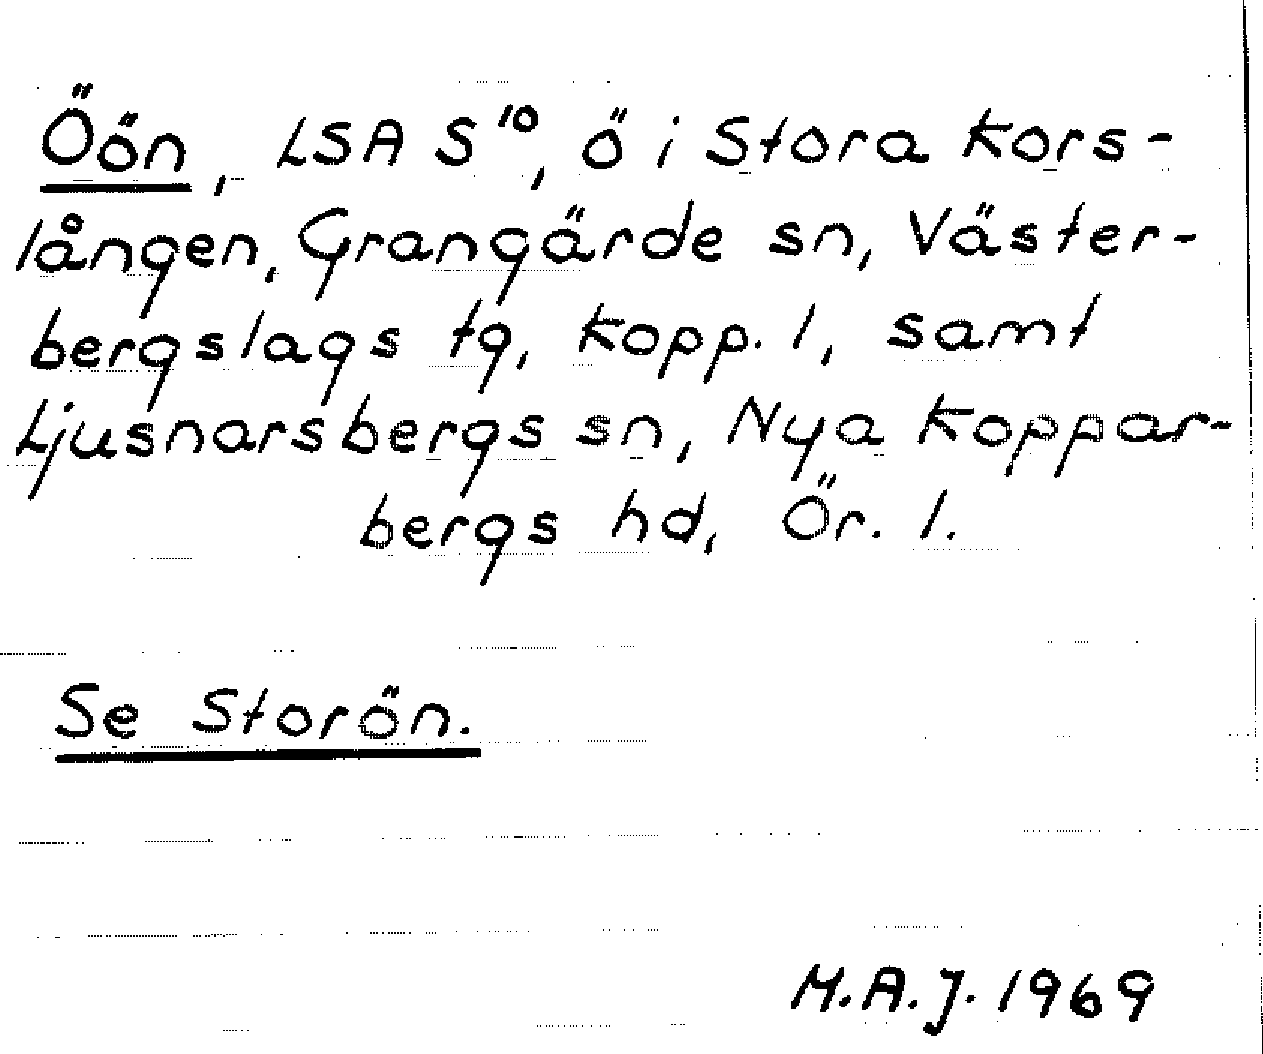 Öön, LSA S¹⁰, ö i Stora Kors-
lången, Grangärde sn, Väster-
bergslags tg, Kopp. l, samt
Ljusnarsbergs sn, Nya Koppar-
bergs hd, Ör. l.
Se Storön.
M.A.J. 1969